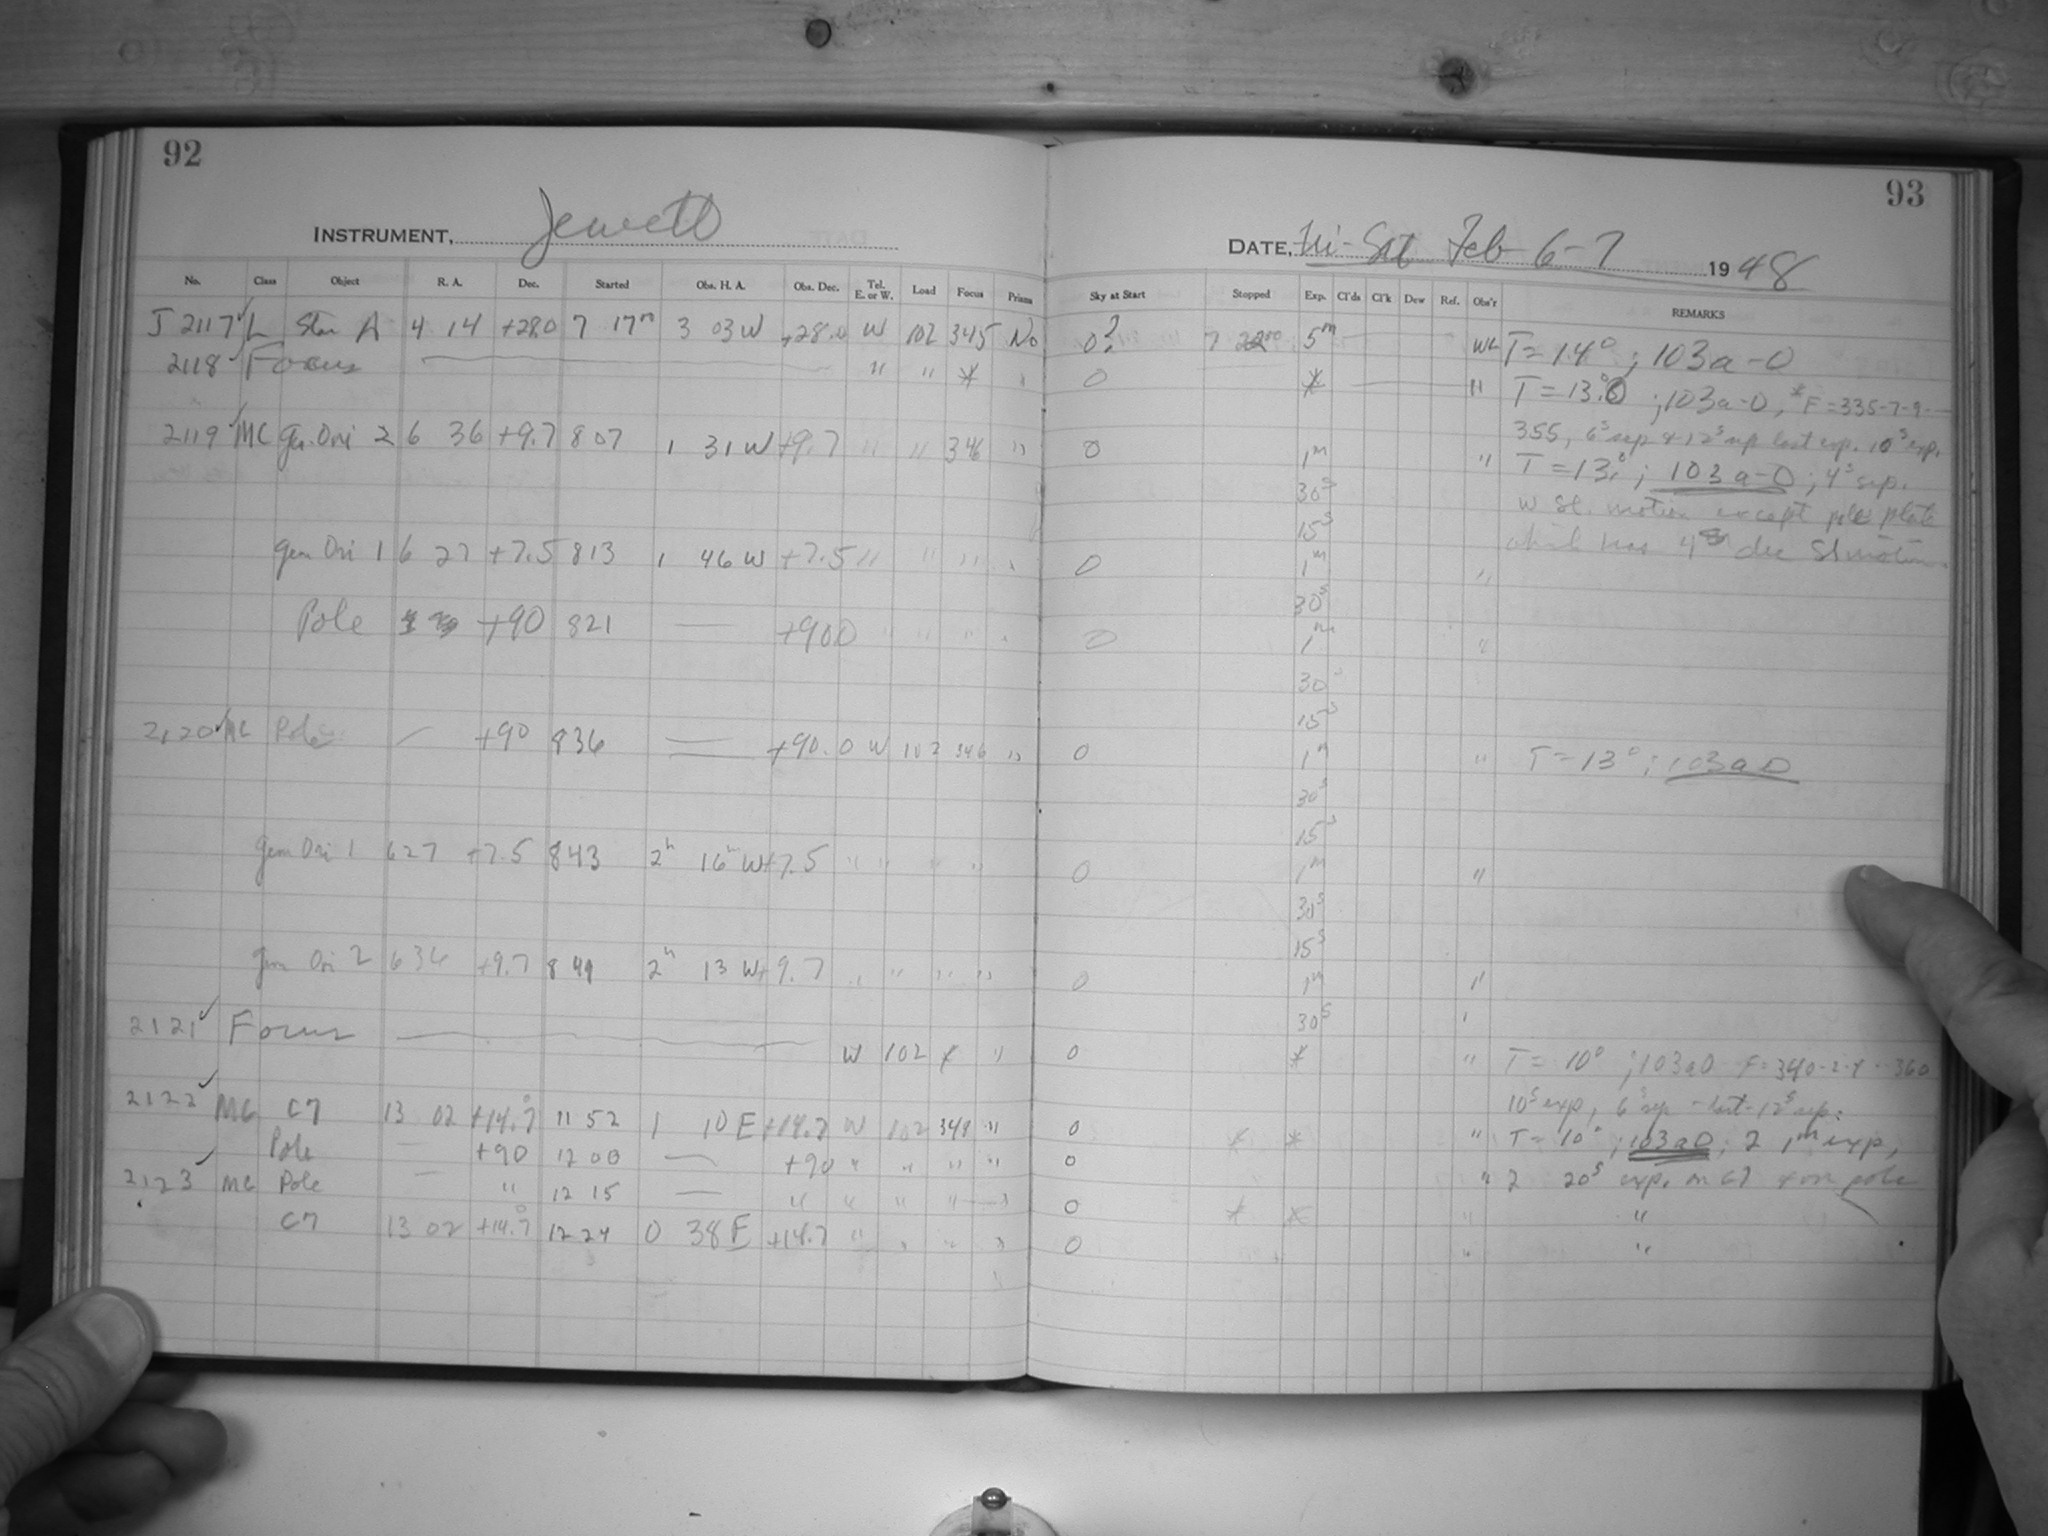 92
INSTRUMENT, Jewett
No. Class Object R. A. Dec. Started Obs. H. A. Obs. Dec. Tel. E. or W. Load Focus Prisms
J 2117 ✓ L Star A 4 14 +28.0 7 17m 3 03 W +28.0 W 102 345 No
2118 ✓ Focus " " *
2119 ✓ MC Gem. Ori 2 6 36 +9.7 8 07 1 31 W +9.7 " " 346 "
Gem Ori 1 6 27 +7.5 8 13 1 46 W +7.5 " " " "
Pole +90 8 21 — +90.0 " " " "
2120 ✓ MC Pole — +90 8 36 — +90.0 W 102 346 "
Gem Ori 1 6 27 +7.5 8 43 2h 16m W +7.5 " " " "
Gem Ori 2 6 36 +9.7 8 49 2h 13 W +9.7 " " " "
2121 ✓ Focus W 102 * "
2122 ✓ MC C7 13 02 +14.7 11 52 1 10 E +14.7 W 102 348 "
Pole — +90 12 00 — +90 " " " "
2123 ✓ MC Pole — " 12 15 — " " " " "
C7 13 02 +14.7 12 24 0 38 E +14.7 " " " "
93
DATE, Fri-Sat Feb 6-7 1948
Sky at Start Stopped Exp. Cl'ds Cl'k Dew Ref. Obs'r REMARKS
0? 7 22 5m WL T = 14° ; 103a-O
0 * " T = 13° ; 103a-O, *F = 335-7-9-—
355, 6s sep & 12s sep last exp. 10s exp.
0 1m " T = 13° ; 103a-O ; 4s sep.
30s W Sl. motion except pole plate
15s which has 4s dec Sl motion.
0 1m "
30s
0 1m "
30s
15s
0 1m " T = 13° ; 103aO
30s
15s
0 1m "
30s
15s
0 1m "
30s '
0 * " T = 10° ; 103aO F = 340-2-4--360
10s exp, 6s sep - last - 12s sep.
0 * * " T = 10° ; 103aO ; 2 1m exp,
0 " 2 20s exp. on C7 & on pole
0 * * " "
0 " "